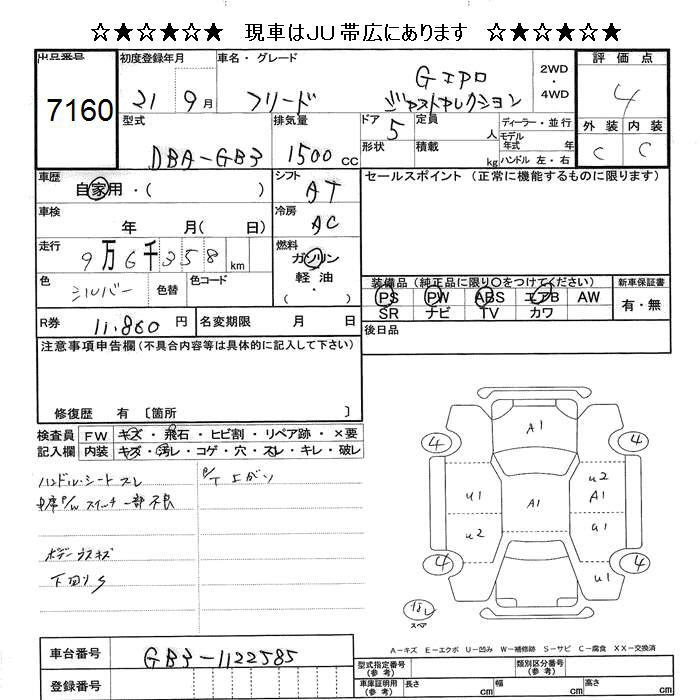 ☆★☆★☆★ 現車はJU帯広にあります ☆★☆★☆★
出品番号 初度登録年月 車名・グレード 評価点
7160 21 9月 フリード Gエアロ 2WD・4WD 4
型式 排気量 ドア 定員 ディーラー・並行 外装 内装
DBA-GB3 1500cc 5 人 モデル年式 年 C C
形状 積載 kg ハンドル 左・右
車歴 シフト セールスポイント (正常に機能するものに限ります)
自家用・( ) AT
車検 冷房
年 月( 日) AC
走行 燃料
9万6千358km ガソリン
色 色替 色コード 軽油
シルバー ( ・ )
装備品(純正品に限り○をつけてください) 新車保証書
PS PW ABS エアB AW 有・無
SR ナビ TV カワ
R券 11,860円 名変期限 月 日 後日品
注意事項申告欄(不具合内容等は具体的に記入して下さい)
修復歴 有 〔箇所 〕
検査員 FW キズ・飛石・ヒビ割・リペア跡・×要
記入欄 内装 キズ・汚レ・コゲ・穴・スレ・キレ・破レ
ハンドル・シートスレ
P/Wスイッチ一部不良
ボデーウスキズ
下回りS
A1
4 4
U2
U1 A1 A1
U2 U1
4 4
U1
なし
スペア
A-キズ E-エクボ U-凹み W-補修跡 S-サビ C-腐食 XX-交換済
車台番号 GB3-1122585
登録番号
型式指定番号(参考) 類別区分番号(参考)
車庫証明用(参考) 長さ cm 幅 cm 高さ cm